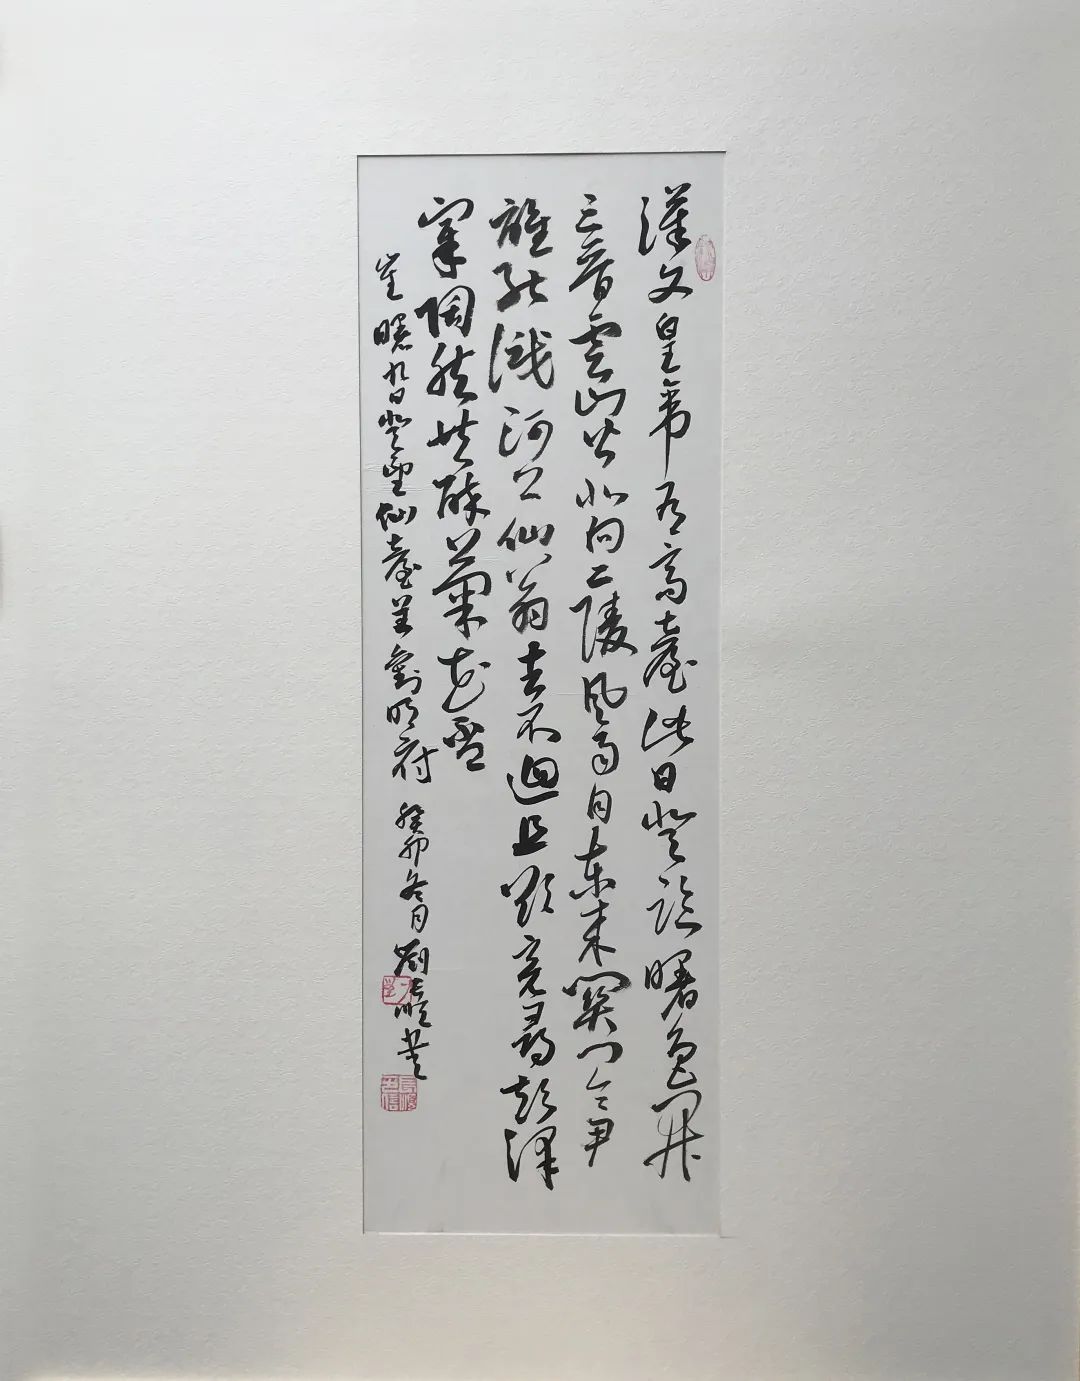 漢文皇帝有高臺此日登臨曙色開
三晉雲山皆北向二陵風雨自東來關門令尹
誰能識河上仙翁去不迴且欲竟尋彭澤
宰陶然共醉菊花盃
崔曙九日登望仙臺呈劉明府 癸卯冬月劉長順書